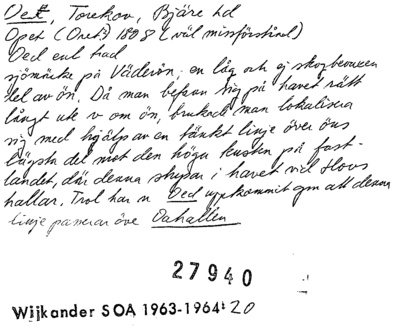 Oet, Torekov, Bjäre hd
Opet (Oret?) 1808 (väl missförstånd)
Oed enl trad
sjömärke på Väderön, en låg och ej skogbevuxen
del av ön. Då man befann sig på havet rätt
långt ute v om ön, brukade man lokalisera
sig med hjälp av en tänkt linje över öns
lägsta del mot den höga kusten på fast-
landet, där denna stupar i havet vid Hovs
hallar. Trol har n Oed uppkommit gm att denna
linje passerar över Oahallen
27940
Wijkander SOA 1963-1964: 20